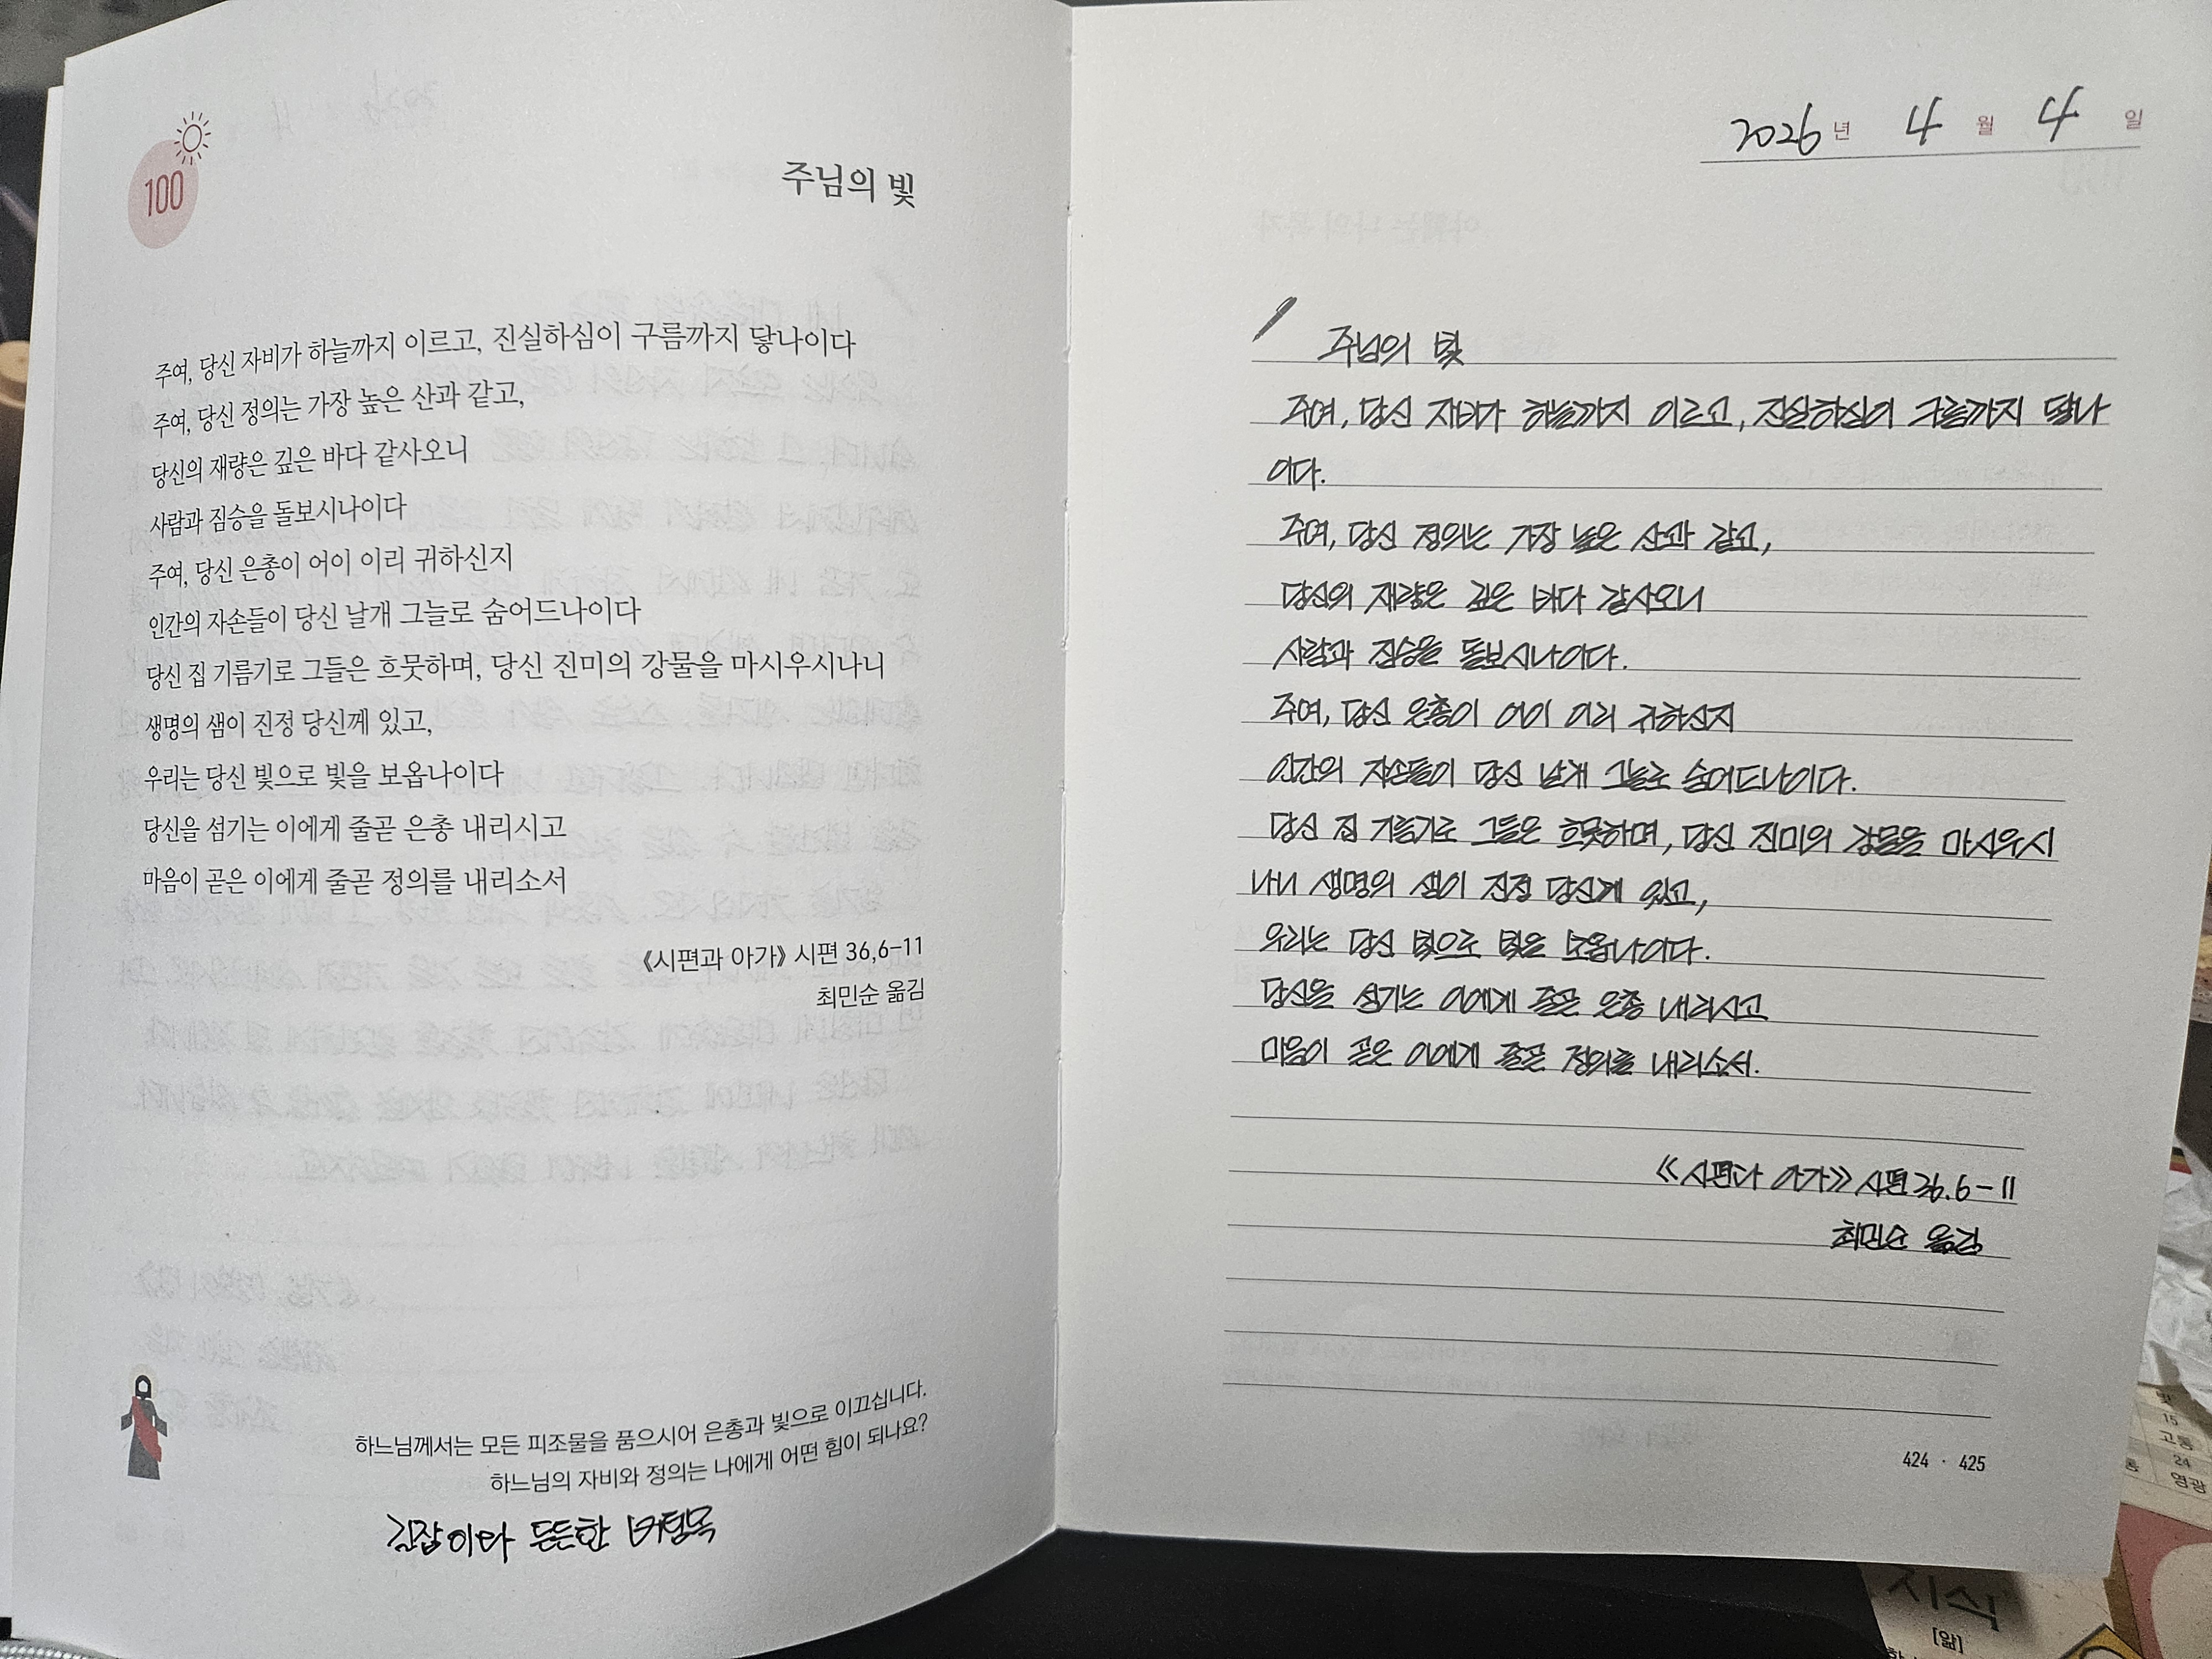 100
주님의 빛
주여, 당신 자비가 하늘까지 이르고, 진실하심이 구름까지 닿나이다
주여, 당신 정의는 가장 높은 산과 같고,
당신의 재량은 깊은 바다 같사오니
사람과 짐승을 돌보시나이다
주여, 당신 은총이 어이 이리 귀하신지
인간의 자손들이 당신 날개 그늘로 숨어드나이다
당신 집 기름기로 그들은 흐뭇하며, 당신 진미의 강물을 마시우시나니
생명의 샘이 진정 당신께 있고,
우리는 당신 빛으로 빛을 보옵나이다
당신을 섬기는 이에게 줄곧 은총 내리시고
마음이 곧은 이에게 줄곧 정의를 내리소서
《시편과 아가》 시편 36,6-11
최민순 옮김
하느님께서는 모든 피조물을 품으시어 은총과 빛으로 이끄십니다.
하느님의 자비와 정의는 나에게 어떤 힘이 되나요?
길잡이다 든든한 버팀목
2026년 4월 4일
주님의 빛
주여, 당신 자비가 하늘까지 이르고, 진실하심이 구름까지 닿나
이다.
주여, 당신 정의는 가장 높은 산과 같고,
당신의 재량은 깊은 바다 같사오니
사람과 짐승을 돌보시나이다.
주여, 당신 은총이 어이 이리 귀하신지
인간의 자손들이 당신 날개 그늘로 숨어드나이다.
당신 집 기름기로 그들은 흐뭇하며, 당신 진미의 강물을 마시우시
나니 생명의 샘이 진정 당신께 있고,
우리는 당신 빛으로 빛을 보옵나이다.
당신을 섬기는 이에게 줄곧 은총 내리시고
마음이 곧은 이에게 줄곧 정의를 내리소서.
《시편과 아가》 시편 36.6-11
최민순 옮김
424 · 425
15
고통
24
영광
지식
[앞]